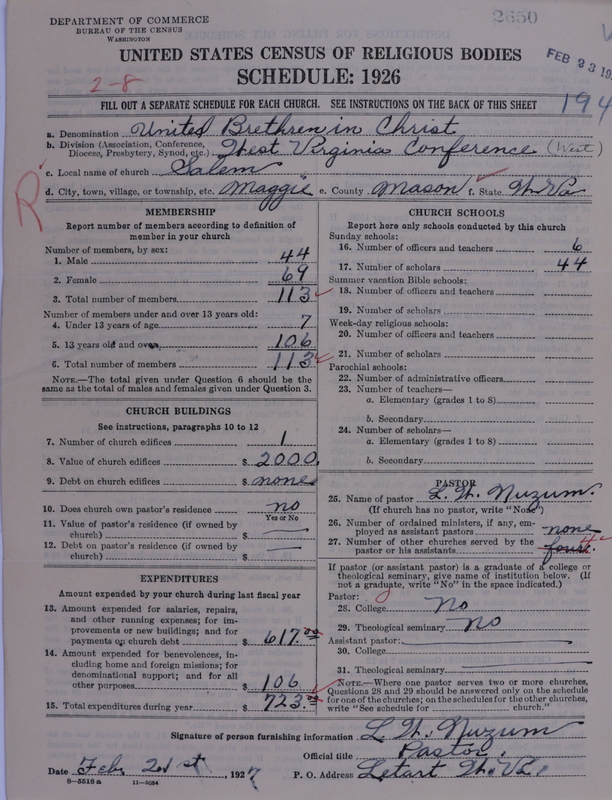 DEPARTMENT OF COMMERCE
BUREAU OF THE CENSUS
WASHINGTON
2650
UNITED STATES CENSUS OF RELIGIOUS BODIES
SCHEDULE: 1926
FEB 23 19
2-8
FILL OUT A SEPARATE SCHEDULE FOR EACH CHURCH. SEE INSTRUCTIONS ON THE BACK OF THIS SHEET
194
a. Denomination United Brethren in Christ
b. Division (Association, Conference, Diocese, Presbytery, Synod, etc.) West Virginia Conference (West)
c. Local name of church Salem
d. City, town, village, or township, etc. Maggie e. County Mason f. State W. Va
R
MEMBERSHIP
Report number of members according to definition of
member in your church
Number of members, by sex:
1. Male 44
2. Female 69
3. Total number of members 113
Number of members under and over 13 years old:
4. Under 13 years of age 7
5. 13 years old and over 106
6. Total number of members 113
NOTE.—The total given under Question 6 should be
same as the total of males and females given under Question 3.
CHURCH BUILDINGS
See instructions, paragraphs 10 to 12
7. Number of church edifices 1
8. Value of church edifices $ 2000.
9. Debt on church edifices $ none
10. Does church own pastor's residence no
Yes or No
11. Value of pastor's residence (if owned by
church) $
12. Debt on pastor's residence (if owned by
church) $
EXPENDITURES
Amount expended by your church during last fiscal year
13. Amount expended for salaries, repairs,
and other running expenses; for im-
provements or new buildings; and for
payments on church debt $ 617.00
14. Amount expended for benevolences, in-
cluding home and foreign missions; for
denominational support; and for all
other purposes $ 106
15. Total expenditures during year $ 723.00
CHURCH SCHOOLS
Report here only schools conducted by this church
Sunday schools:
16. Number of officers and teachers 6
17. Number of scholars 44
Summer vacation Bible schools:
18. Number of officers and teachers
19. Number of scholars
Week-day religious schools:
20. Number of officers and teachers
21. Number of scholars
Parochial schools:
22. Number of administrative officers
23. Number of teachers—
a. Elementary (grades 1 to 8)
b. Secondary
24. Number of scholars—
a. Elementary (grades 1 to 8)
b. Secondary
PASTOR
25. Name of pastor L. W. Nuzum.
(If church has no pastor, write "None")
26. Number of ordained ministers, if any, em-
ployed as assistant pastors none
27. Number of other churches served by the
pastor or his assistants four 4
If pastor (or assistant pastor) is a graduate of a college or
theological seminary, give name of institution below. (If
not a graduate, write "No" in the space indicated.)
Pastor:
28. College No
29. Theological seminary No
Assistant pastor:
30. College
31. Theological seminary
NOTE.—Where one pastor serves two or more churches,
Questions 28 and 29 should be answered only on the schedule
for one of the churches; on the schedules for the other churches,
write "See schedule for church."
Signature of person furnishing information L. W. Nuzum
Official title Pastor.
Date Feb. 21st, 1927 P. O. Address Letart W. Va.
8-5518 a 11-9054